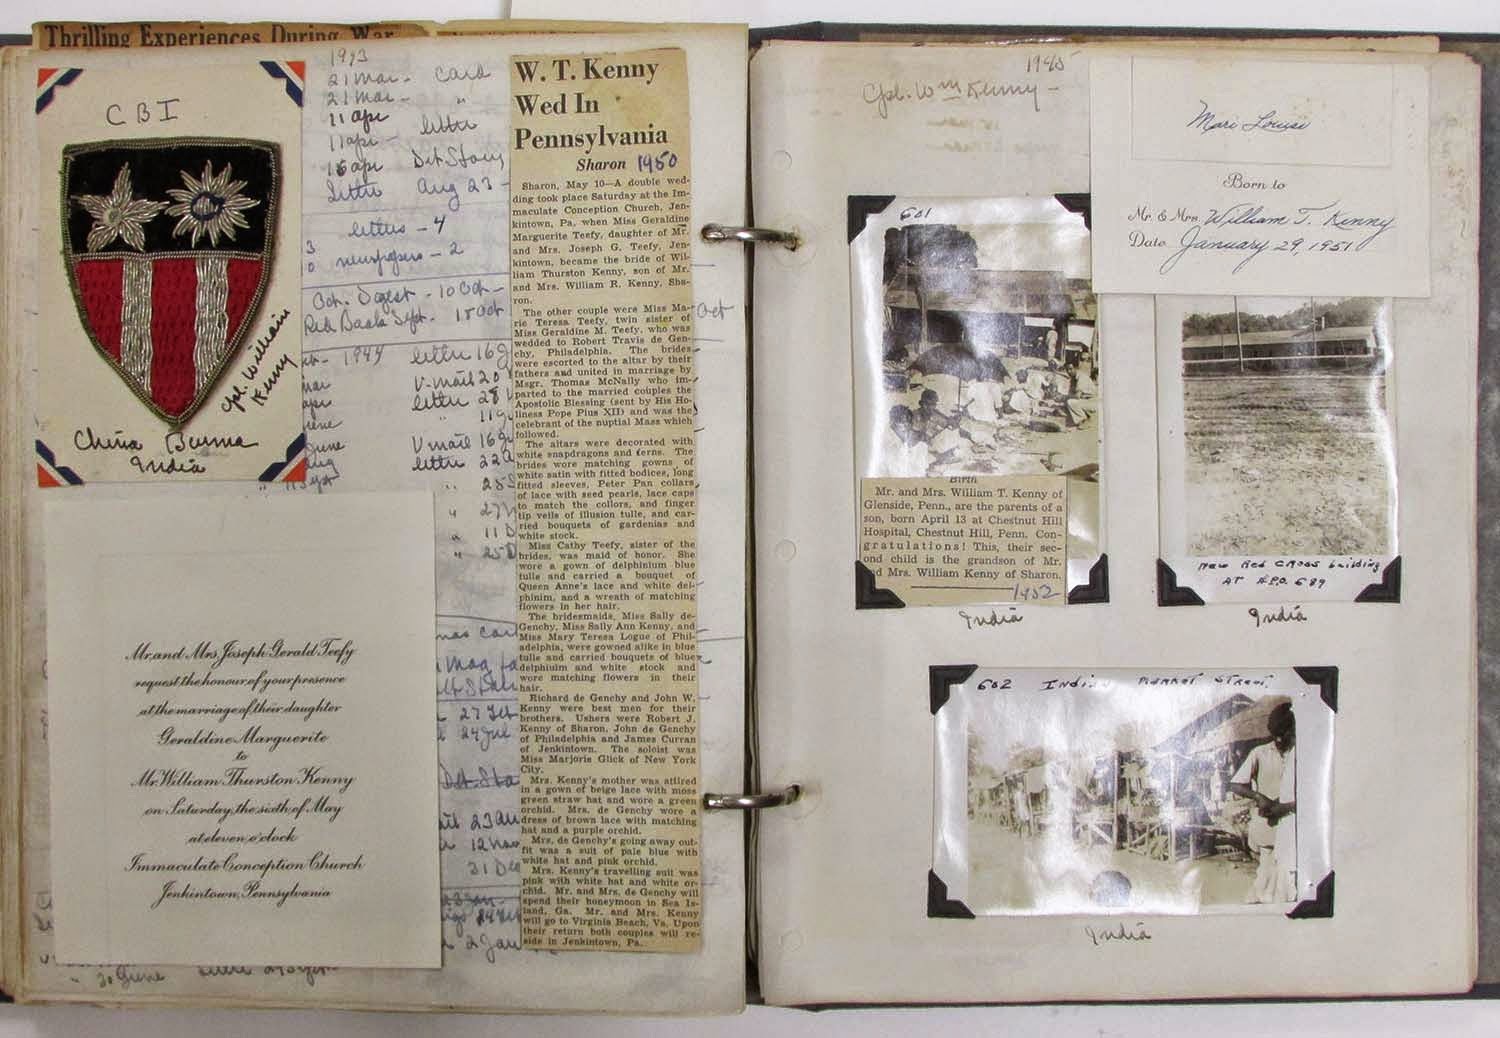 Thrilling Experiences During War
CBI
Cpl. William
Kenny
China Burma
India
1943
21 Mar - Card
21 Mar - "
11 Apr
11 Apr - letter
letter Aug 23 -
letters - 4
newspapers - 2
Oct. Digest - 10 Oct -
18 Oct
1944 letter 16
V-Mail 20
letter 28
V Mail 16
letter 22
W. T. Kenny
Wed In
Pennsylvania
Sharon 1950
Sharon, May 10—A double wed-
ding took place Saturday at the Im-
maculate Conception Church, Jen-
kintown, Pa, when Miss Geraldine
Marguerite Teefy, daughter of Mr.
and Mrs. Joseph G. Teefy, Jen-
kintown, became the bride of Wil-
liam Thurston Kenny, son of Mr.
and Mrs. William R. Kenny, Sha-
ron.
The other couple were Miss Ma-
rie Teresa Teefy, twin sister of
Miss Geraldine M. Teefy, who was
wedded to Robert Travis de Gen-
chy, Philadelphia. The brides
were escorted to the altar by their
fathers and united in marriage by
Msgr. Thomas McNally who im-
parted to the married couples the
Apostolic Blessing (sent by His Ho-
liness Pope Pius XII) and was the
celebrant of the nuptial Mass which
followed.
The altars were decorated with
white snapdragons and ferns. The
brides wore matching gowns of
white satin with fitted bodices, long
fitted sleeves, Peter Pan collars
of lace with seed pearls, lace caps
to match the collors, and finger
tip veils of illusion tulle, and car-
ried bouquets of gardenias and
white stock.
Miss Cathy Teefy, sister of the
brides, was maid of honor. She
wore a gown of delphinium blue
tulle and carried a bouquet of
Queen Anne's lace and white del-
phinim, and a wreath of matching
flowers in her hair.
The bridesmaids, Miss Sally de-
Genchy, Miss Sally Ann Kenny, and
Miss Mary Teresa Logue of Phil-
adelphia, were gowned alike in blue
tulle and carried bouquets of blue
delphiuim and white stock and
wore matching flowers in their
hair.
Richard de Genchy and John W.
Kenny were best men for their
brothers. Ushers were Robert J.
Kenny of Sharon, John de Genchy
of Philadelphia and James Curran
of Jenkintown. The soloist was
Miss Marjorie Glick of New York
City.
Mrs. Kenny's mother was attired
in a gown of beige lace with moss
green straw hat and wore a green
orchid. Mrs. de Genchy wore a
dress of brown lace with matching
hat and a purple orchid.
Mrs. de Genchy's going away out-
fit was a suit of pale blue with
white hat and pink orchid.
Mrs. Kenny's travelling suit was
pink with white hat and white or-
chid. Mr. and Mrs. de Genchy will
spend their honeymoon in Sea Is-
land, Ga. Mr. and Mrs. Kenny
will go to Virginia Beach, Va. Upon
their return both couples will re-
side in Jenkintown, Pa.
Mr. and Mrs. Joseph Gerald Teefy
request the honour of your presence
at the marriage of their daughter
Geraldine Marguerite
to
Mr. William Thurston Kenny
on Saturday, the sixth of May
at eleven o'clock
Immaculate Conception Church
Jenkintown, Pennsylvania
1945
Cpl. Wm Kenny -
Mari Louise
Born to
Mr. & Mrs. William T. Kenny
Date January 29, 1951
601
Birth
Mr. and Mrs. William T. Kenny of
Glenside, Penn., are the parents of a
son, born April 13 at Chestnut Hill
Hospital, Chestnut Hill, Penn. Con-
gratulations! This, their sec-
ond child is the grandson of Mr.
and Mrs. William Kenny of Sharon.
1952
India
New Red Cross building
AT A.P.O. 689
India
602 Indian Market Street
India